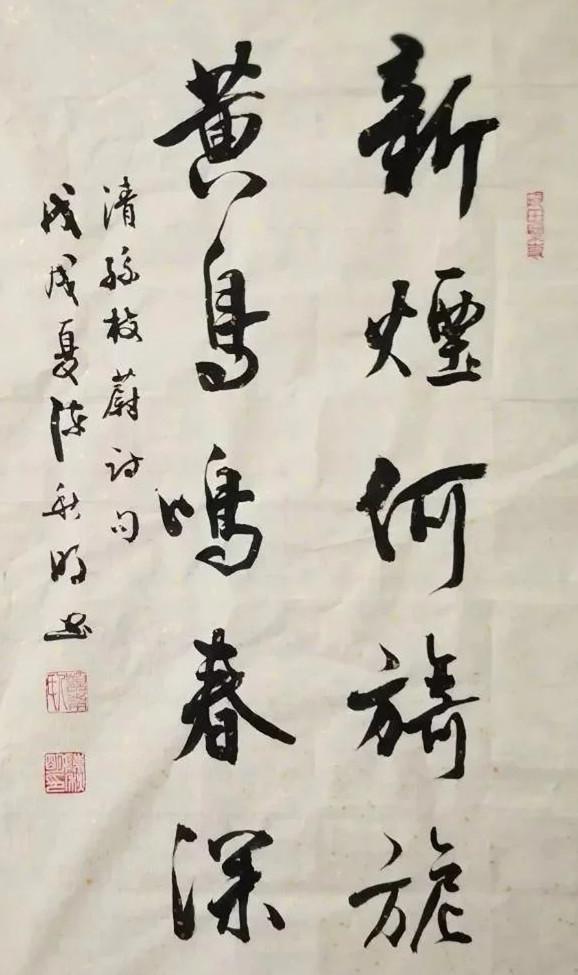 新煙何旖旎
黄鳥鳴春深
清孫枝蔚詩句
戊戌夏陈秋明書